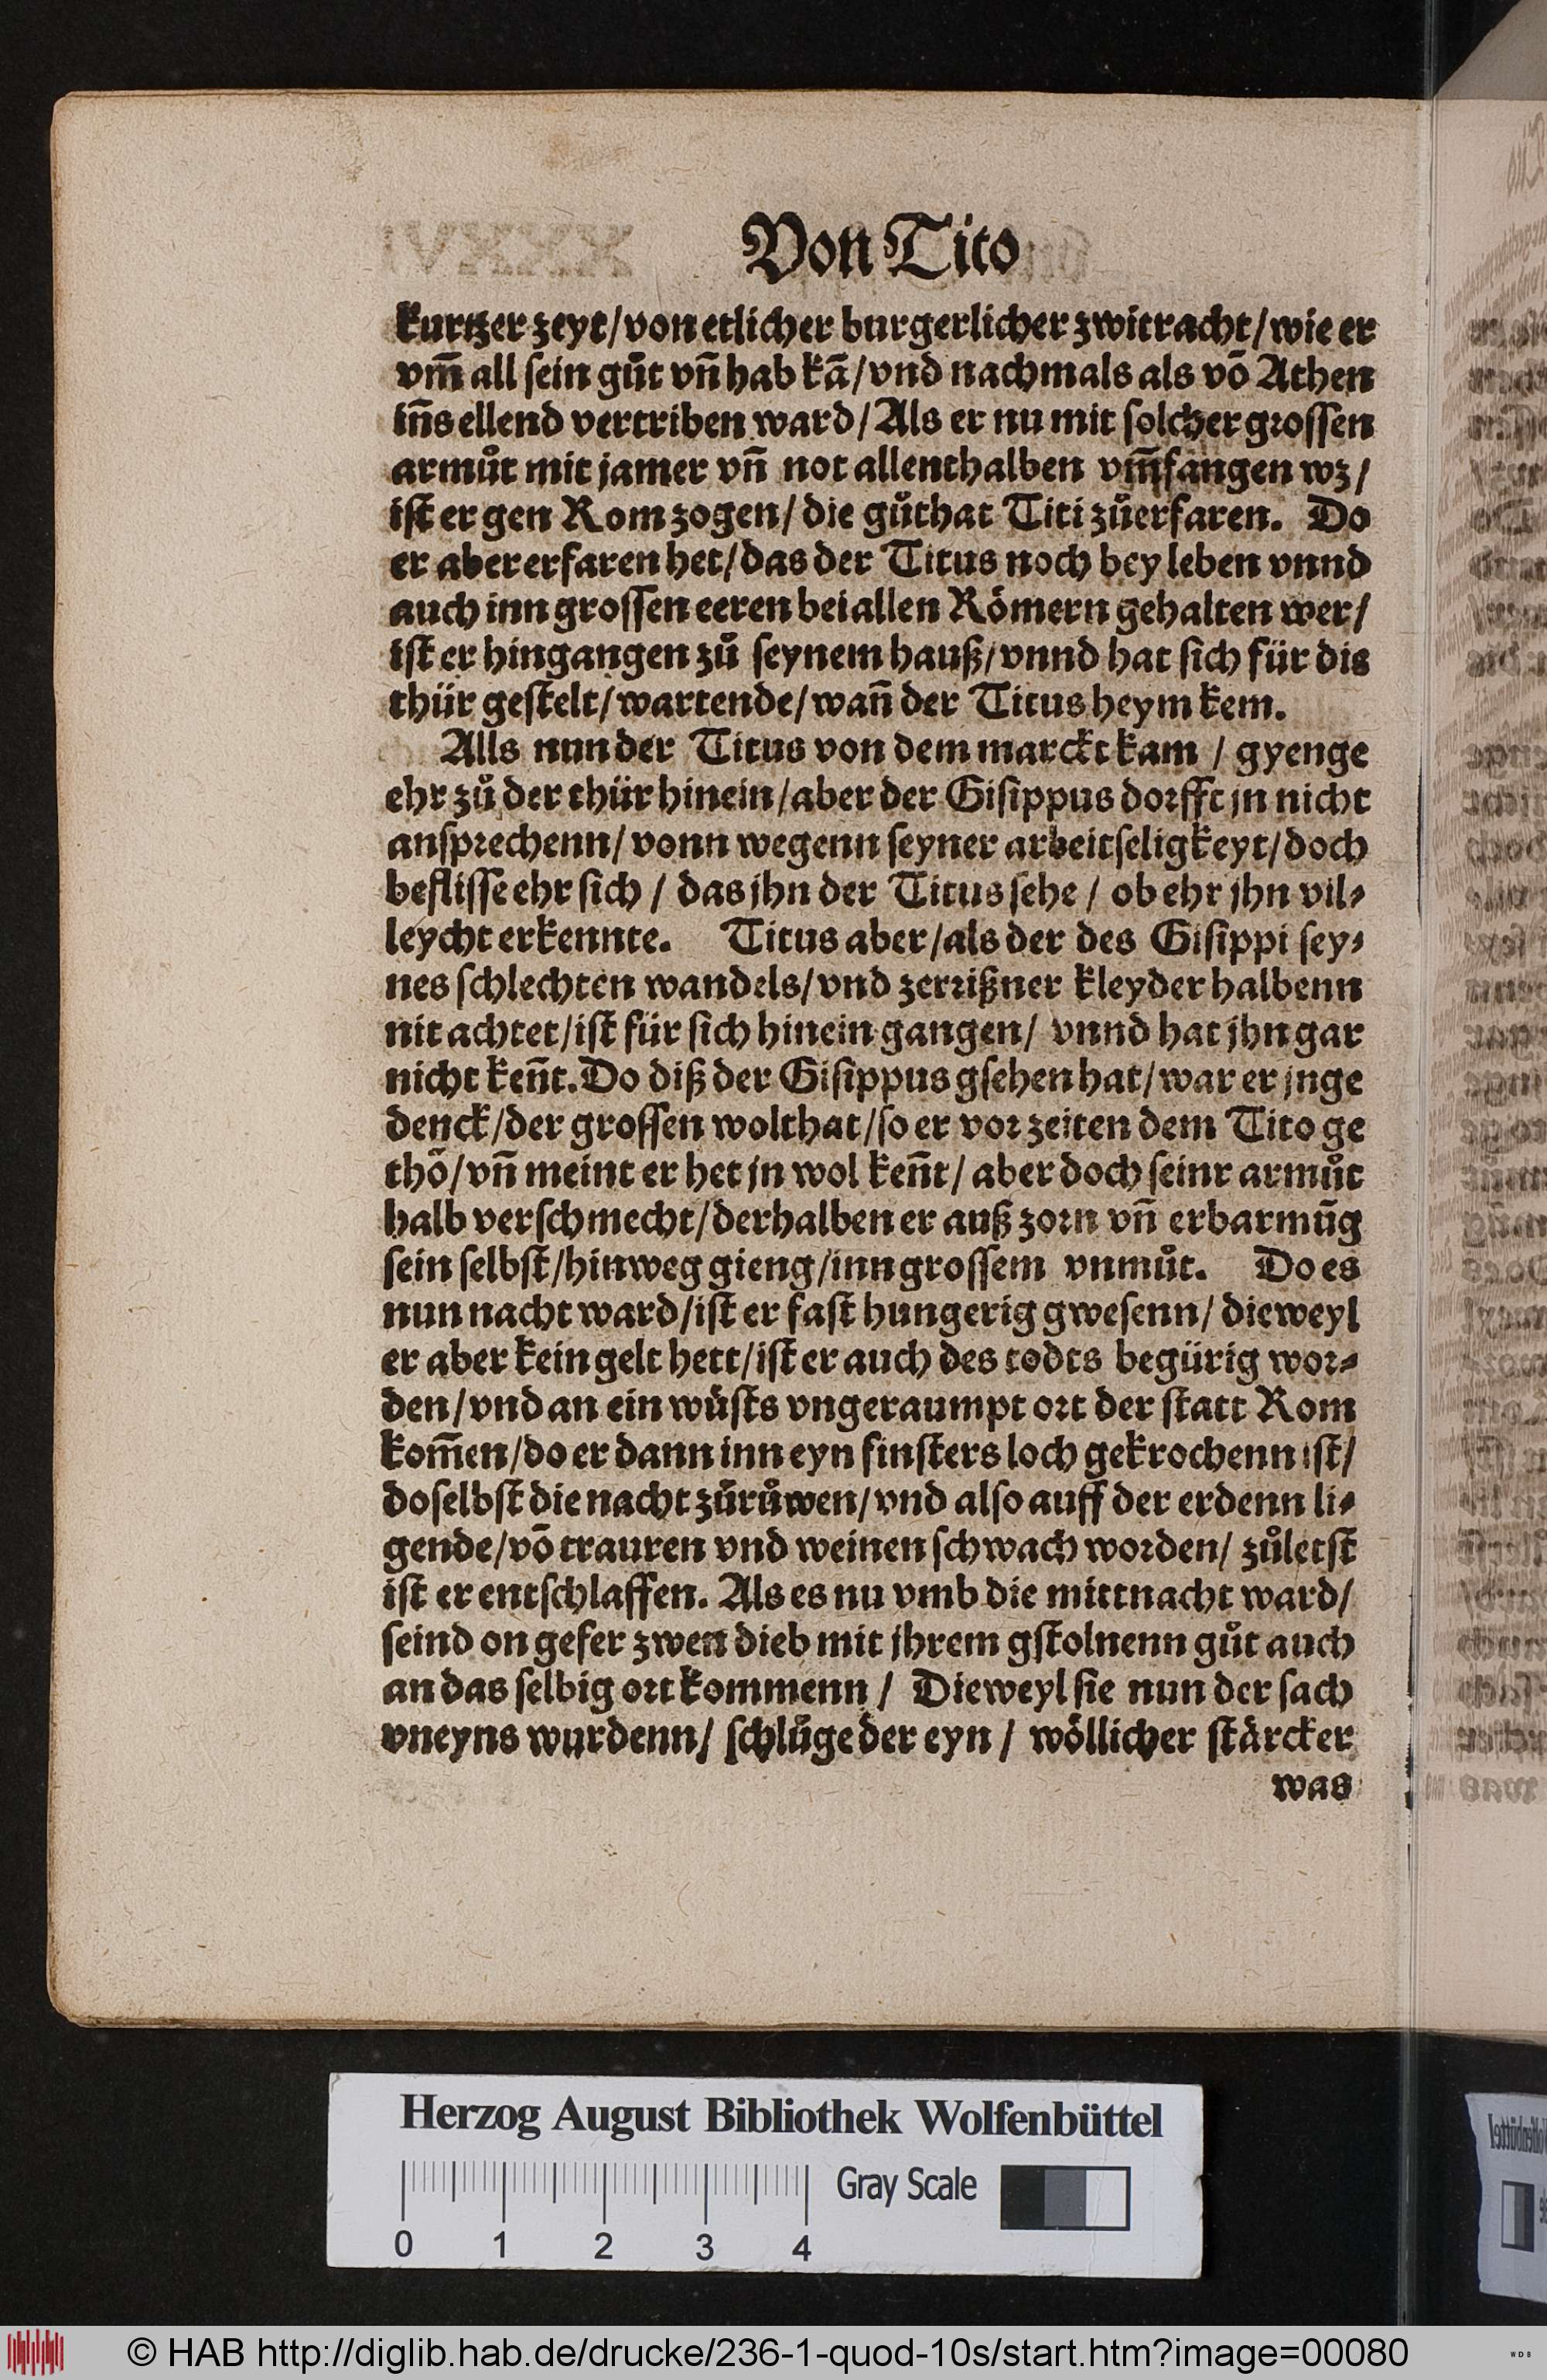 Von Tito
kurtzer zeyt/von etlicher burgerlicher zwitracht/wie er
vm̃ all ſein gůt vñ hab kã/vnd nachmals als võ Athen
iñs ellend vertriben ward/Als er nu mit ſolcher groſſen
armůt mit jamer vñ not allenthalben vm̃fangen wz/
iſt er gen Rom zogen/die gůthat Titi zůerfaren. Do
er aber erfaren het/das der Titus noch bey leben vnnd
auch inn groſſen eeren bei allen Römern gehalten wer/
iſt er hingangen zů ſeynem hauß/vnnd hat ſich für dis
thür geſtelt/wartende/wañ der Titus heym kem.
Alls nun der Titus von dem marckt kam / gyenge
ehr zů der thür hinein/aber der Giſippus dorfft jn nicht
anſprechenn/vonn wegenn ſeyner arbeitſeligkeyt/doch
befliſſe ehr ſich / das jhn der Titus ſehe / ob ehr jhn vil⸗
leycht erkennte. Titus aber/als der des Giſippi ſey⸗
nes ſchlechten wandels/vnd zerrißner kleyder halbenn
nit achtet/iſt für ſich hinein gangen/ vnnd hat jhn gar
nicht keñt. Do diß der Giſippus gſehen hat/war er jnge
denck/der groſſen wolthat/ſo er vor zeiten dem Tito ge
thõ/vñ meint er het jn wol keñt/ aber doch ſeinr armůt
halb verſchmecht/derhalben er auß zorn vñ erbarmũg
ſein ſelbſt/hinweg gieng/inn groſſem vnmůt. Do es
nun nacht ward/iſt er faſt hungerig gweſenn/ dieweyl
er aber kein gelt hett/iſt er auch des todts begürig wor⸗
den/vnd an ein wüſts vngeraumpt ort der ſtatt Rom
kom̃en/do er dann inn eyn finſters loch gekrochenn iſt/
doſelbſt die nacht zůrůwen/vnd alſo auff der erdenn li⸗
gende/võ trauren vnd weinen ſchwach worden/ zůletſt
iſt er entſchlaffen. Als es nu vmb die mittnacht ward/
ſeind on gefer zwen dieb mit jhrem gſtolnenn gůt auch
an das ſelbig ort kommenn / Dieweyl ſie nun der ſach
vneyns wurdenn/ ſchlůge der eyn / wöllicher ſtärcker
was
Herzog August Bibliothek Wolfenbüttel
Gray Scale
0 1 2 3 4
© HAB http://diglib.hab.de/drucke/236-1-quod-10s/start.htm?image=00080